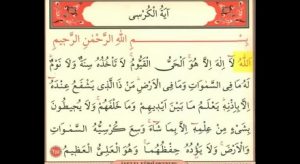 آيَةُ الْكُرْسِى
بِسْمِ اللهِ الرَّحْمٰنِ الرَّحِيمِ
اَللهُ لَا اِلٰهَ اِلَّا هُوَ اَلْحَىُّ الْقَيُّومُ لَا تَأْخُذُهُ سِنَةٌ وَلَا نَوْمٌ
لَهُ مَا فِى السَّمٰوَاتِ وَمَا فِى الْاَرْضِ مَنْ ذَا الَّذِى يَشْفَعُ عِنْدَهُ
اِلَّا بِاِذْنِهِ يَعْلَمُ مَا بَيْنَ اَيْدِيهِمْ وَمَا خَلْفَهُمْ وَلَا يُحِيطُونَ
بِشَىْءٍ مِنْ عِلْمِهِ اِلَّا بِمَا شَاءَ وَسِعَ كُرْسِيُّهُ السَّمٰوَاتِ
وَالْاَرْضَ وَلَا يَؤُدُهُ حِفْظُهُمَا وَهُوَ الْعَلِىُّ الْعَظِيمُ